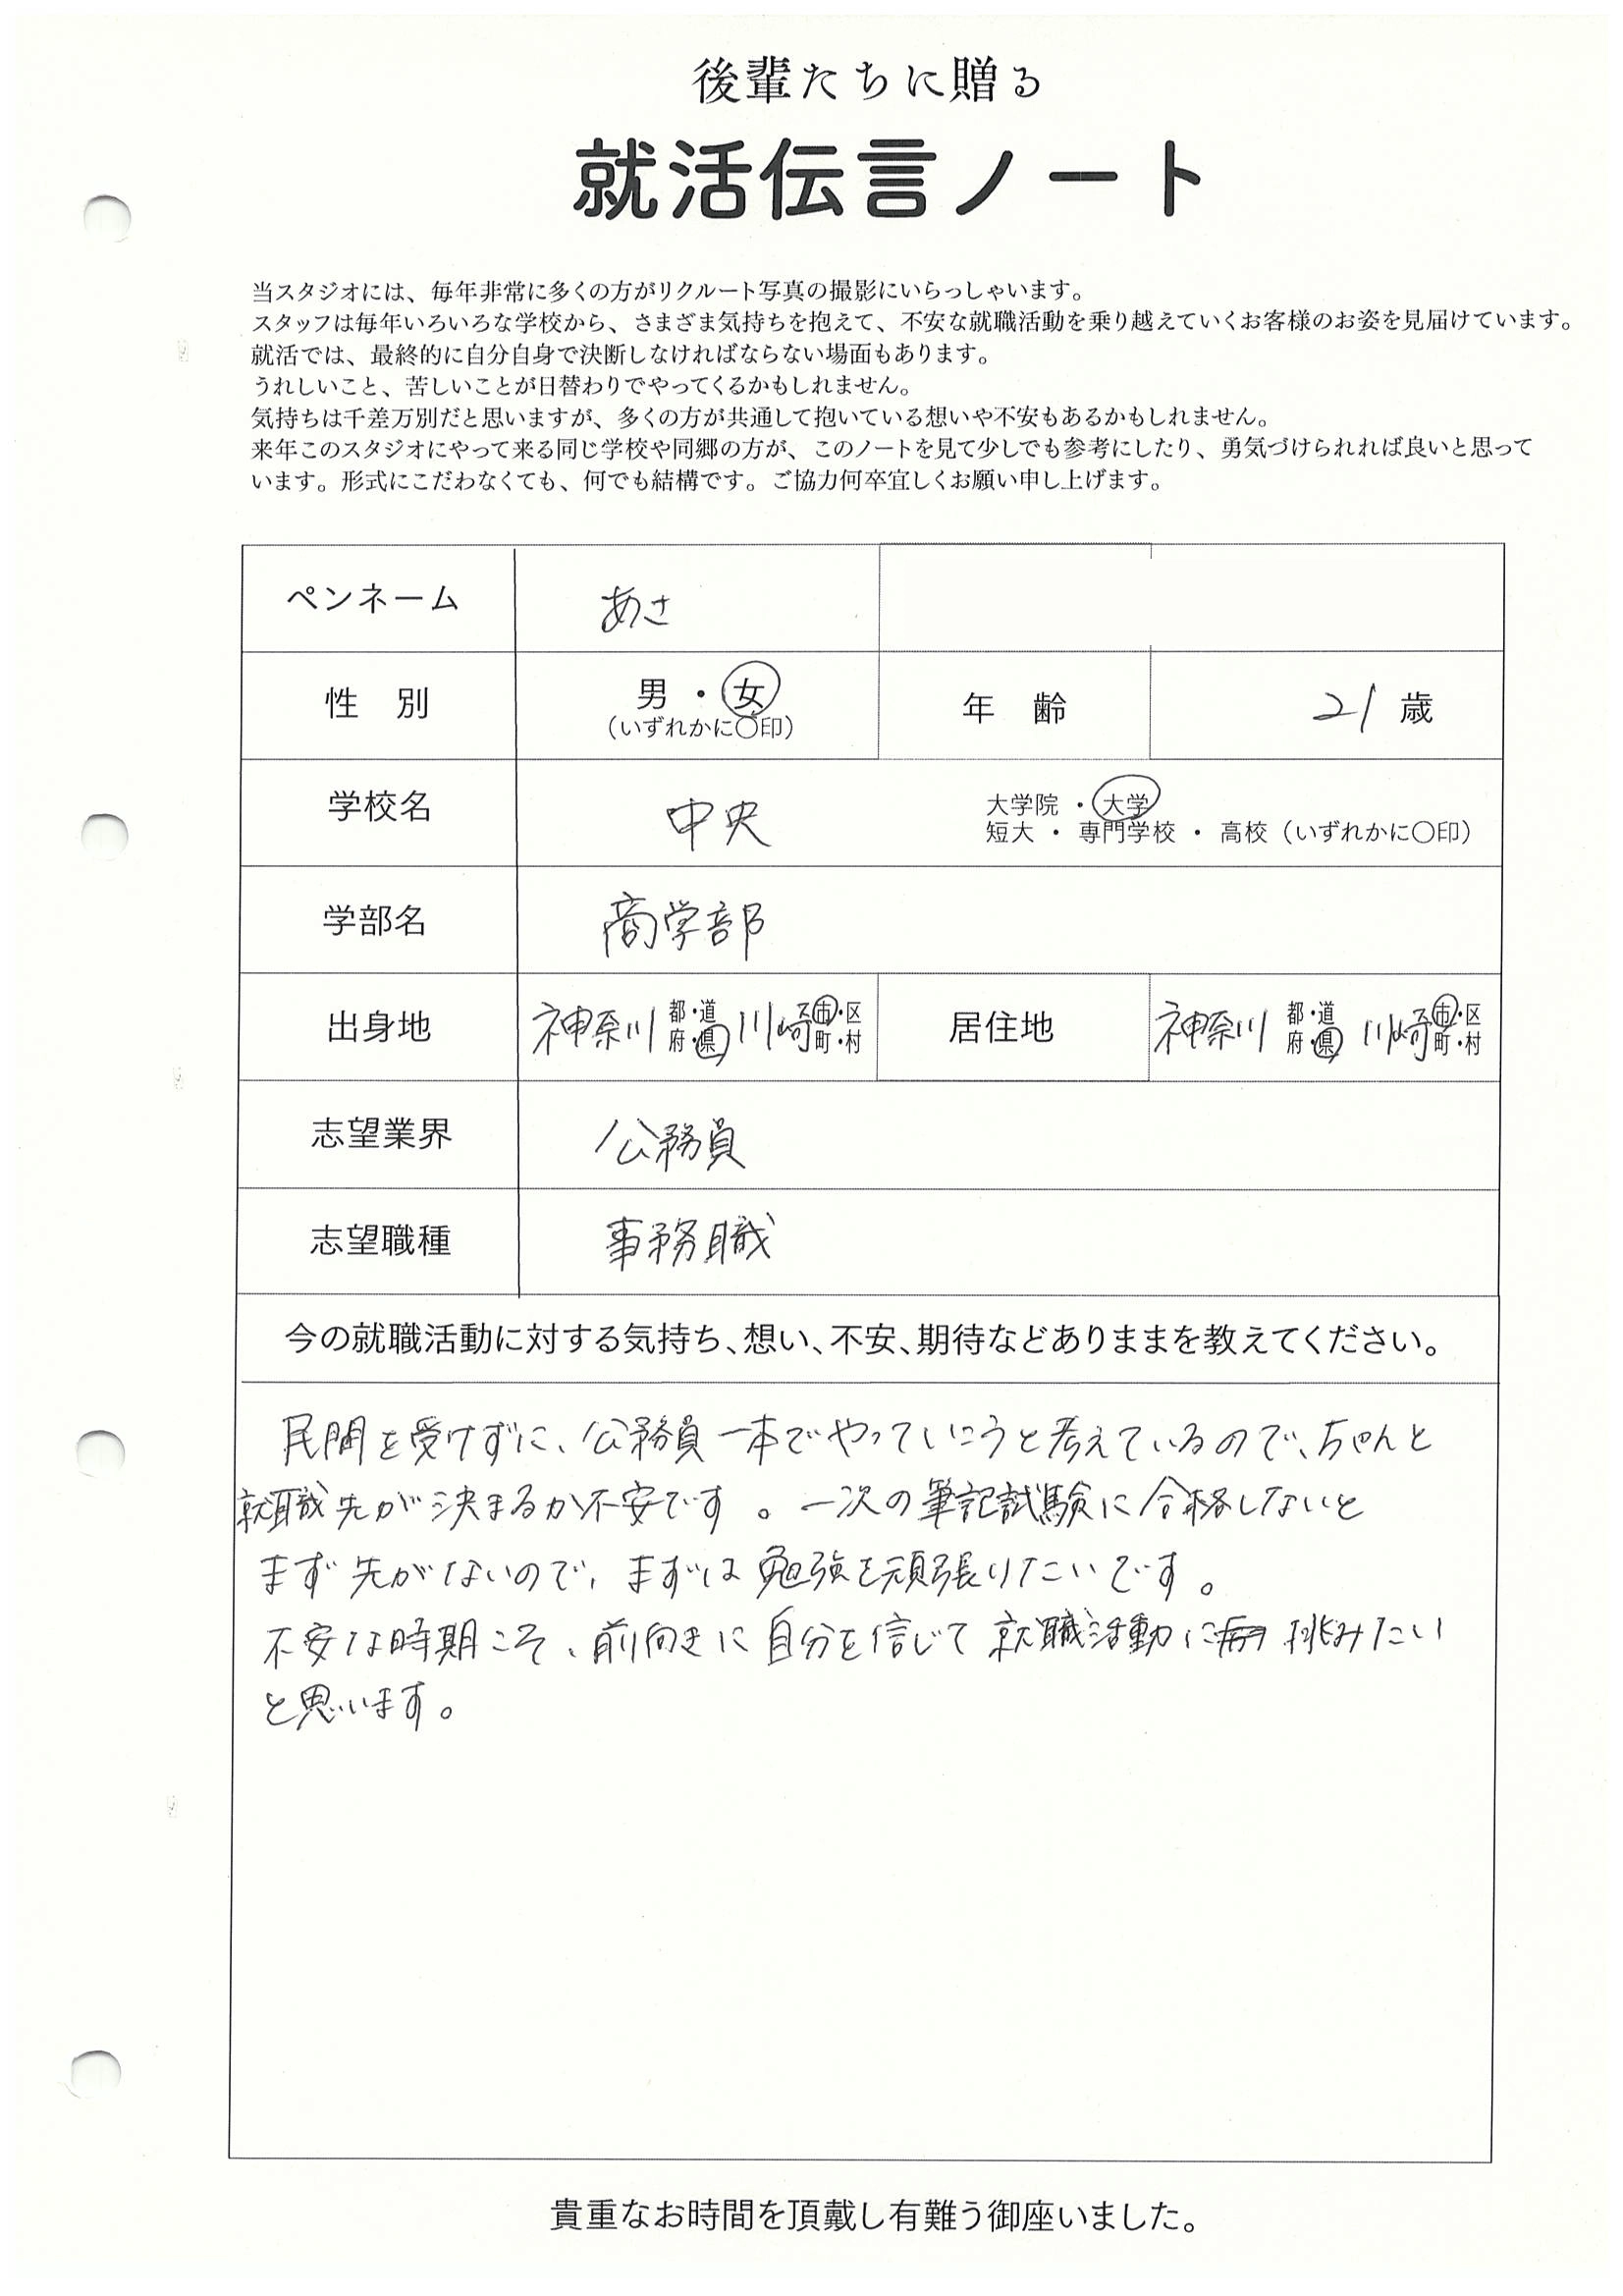 後輩たちに贈る
就活伝言ノート
当スタジオには、毎年非常に多くの方がリクルート写真の撮影にいらっしゃいます。
スタッフは毎年いろいろな学校から、さまざま気持ちを抱えて、不安な就職活動を乗り越えていくお客様のお姿を見届けています。
就活では、最終的に自分自身で決断しなければならない場面もあります。
うれしいこと、苦しいことが日替わりでやってくるかもしれません。
気持ちは千差万別だと思いますが、多くの方が共通して抱いている想いや不安もあるかもしれません。
来年このスタジオにやって来る同じ学校や同郷の方が、このノートを見て少しでも参考にしたり、勇気づけられれば良いと思って
います。形式にこだわなくても、何でも結構です。ご協力何卒宜しくお願い申し上げます。
ペンネーム あさ
性 別 男 ・ 女 (いずれかに〇印) 年 齢 21 歳
学校名 中央 大学院 ・ 大学
短大 ・ 専門学校 ・ 高校 (いずれかに〇印)
学部名 商学部
出身地 神奈川 都・道 府・県 川崎 市・区 町・村 居住地 神奈川 都・道 府・県 川崎 市・区 町・村
志望業界 公務員
志望職種 事務職
今の就職活動に対する気持ち、想い、不安、期待などありままを教えてください。
民間を受けずに、公務員一本でやっていこうと考えているので、ちゃんと
就職先が決まるか不安です。一次の筆記試験に合格しないと
まず先がないので、まずは勉強を頑張りたいです。
不安な時期こそ、前向きに自分を信じて就職活動に挑みたい
と思います。
貴重なお時間を頂戴し有難う御座いました。